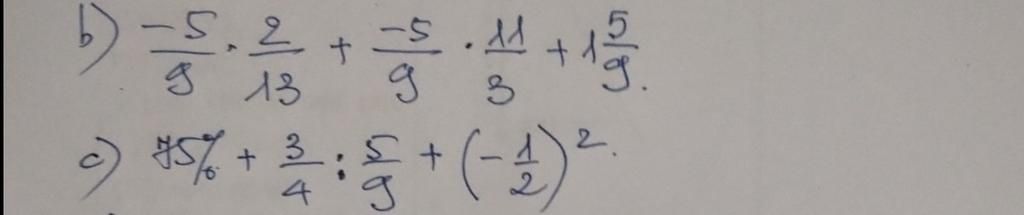 b) \frac{-5}{9} \cdot \frac{2}{13} + \frac{-5}{9} \cdot \frac{11}{3} + 1\frac{5}{9}.
c) 75% + \frac{3}{4} : \frac{5}{9} + \left(-\frac{1}{2}\right)^2.